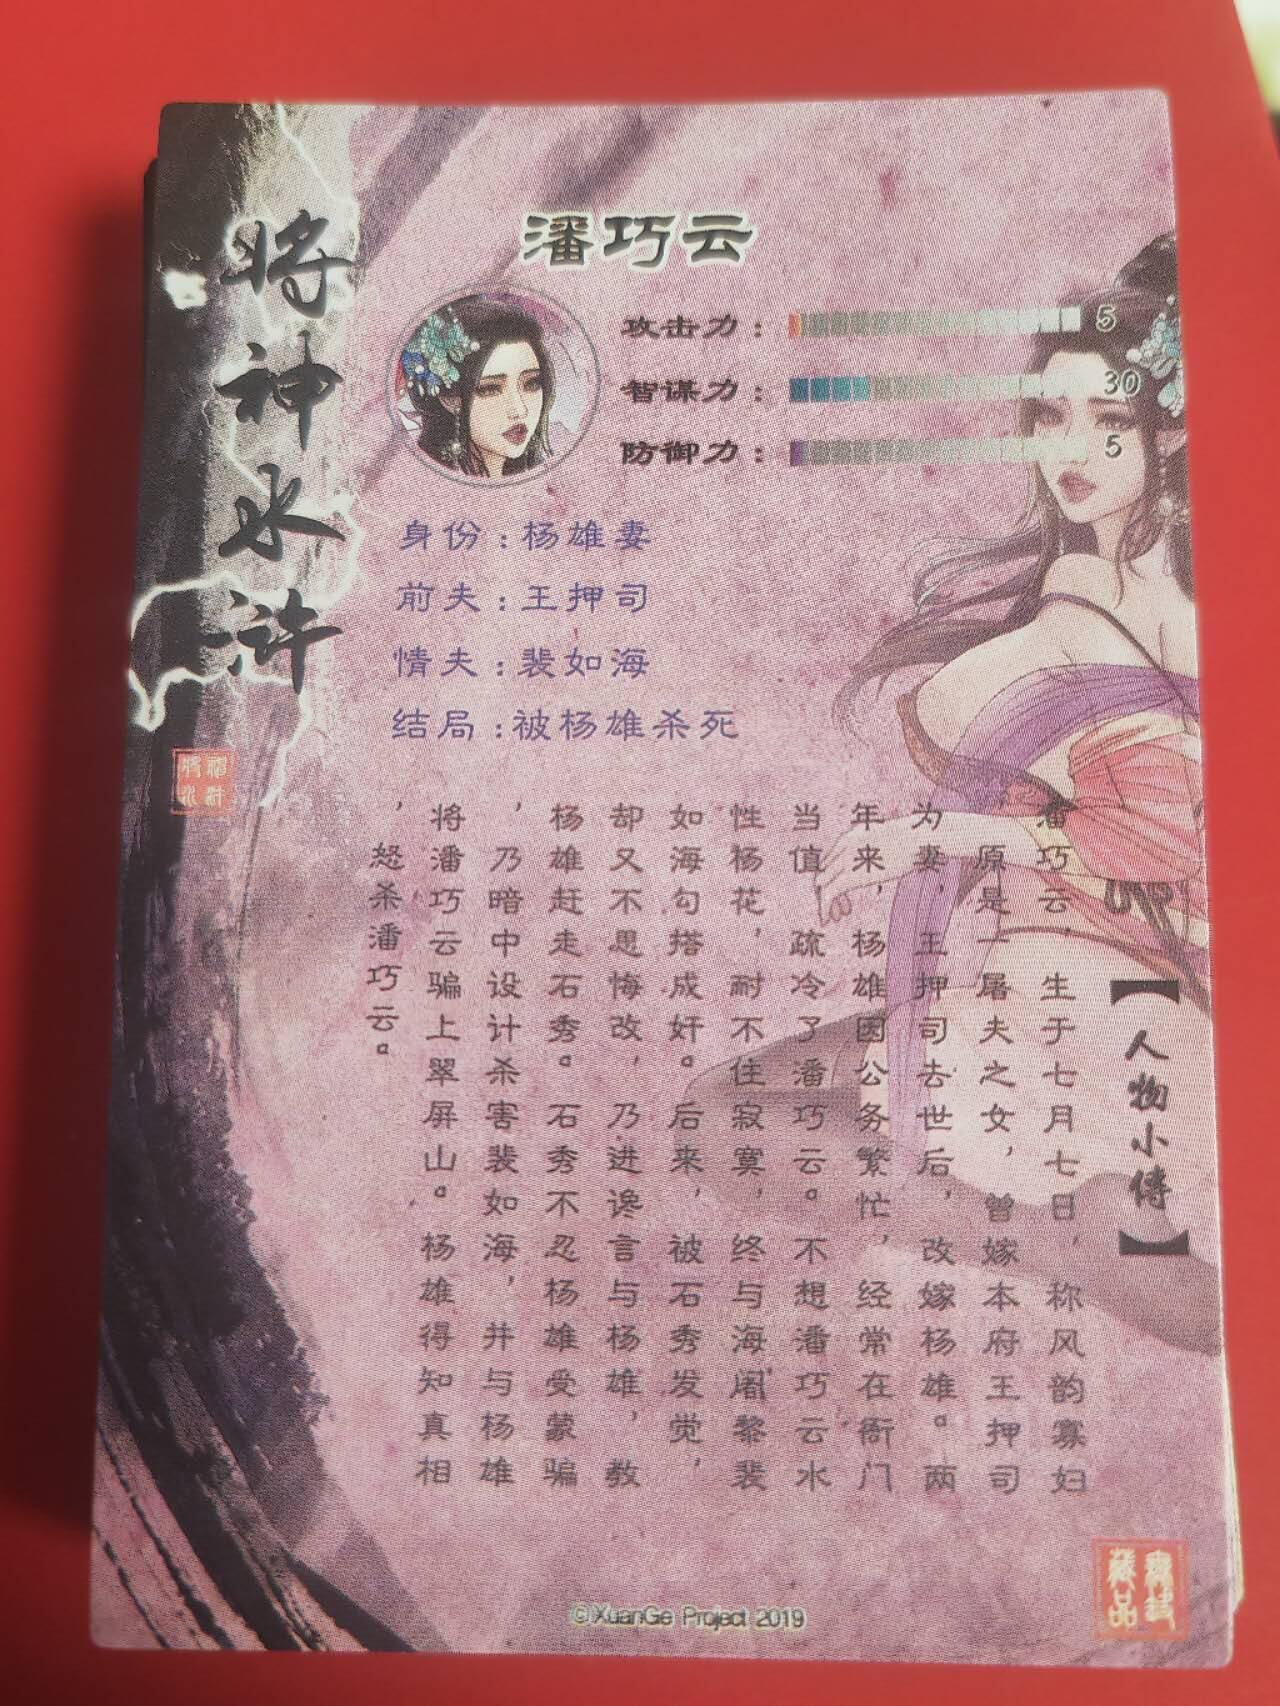 将神水浒
潘巧云
攻击力： 5
智谋力： 30
防御力： 5
身份：杨雄妻
前夫：王押司
情夫：裴如海
结局：被杨雄杀死
【人物小传】
潘巧云，生于七月七日，称风韵寡妇
，原是一屠夫之女，曾嫁本府王押司
为妻，王押司去世后，改嫁杨雄。两
年来，杨雄因公务繁忙，经常在衙门
当值，疏冷了潘巧云。不想潘巧云水
性杨花，耐不住寂寞，终与海阇黎裴
如海勾搭成奸。后来，被石秀发觉，
却又不思悔改，乃进谗言与杨雄，教
杨雄赶走石秀。石秀不忍杨雄受蒙骗
，乃暗中设计杀害裴如海，并与杨雄
将潘巧云骗上翠屏山。杨雄得知真相
，怒杀潘巧云。
©XuanGe Project 2019